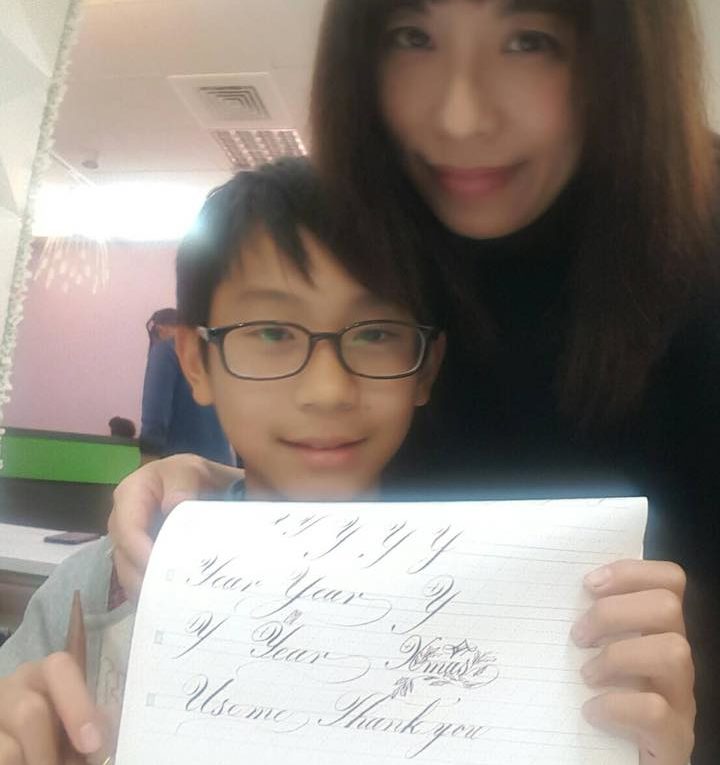 Y Y Y Y Y
Year Year Y
Y Year Xmas
Useme Thank you